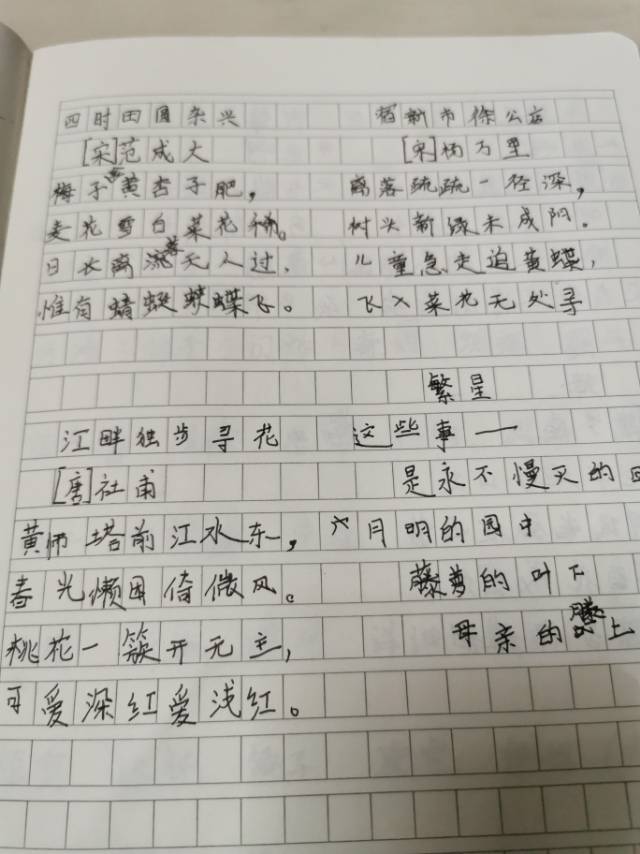 四时田园杂兴
[宋]范成大
梅子金黄杏子肥,
麦花雪白菜花稀。
日长离落无人过,
惟有蜻蜓蛱蝶飞。
宿新市徐公店
[宋]杨万里
离落疏疏一径深,
树头新绿未成阴。
儿童急走追黄蝶,
飞入菜花无处寻
江畔独步寻花
[唐]杜甫
黄师塔前江水东,
春光懒困倚微风。
桃花一簇开无主,
可爱深红爱浅红。
繁星
这些事——
是永不慢灭的回
六月明的园中
藤萝的叶下
母亲的膝上